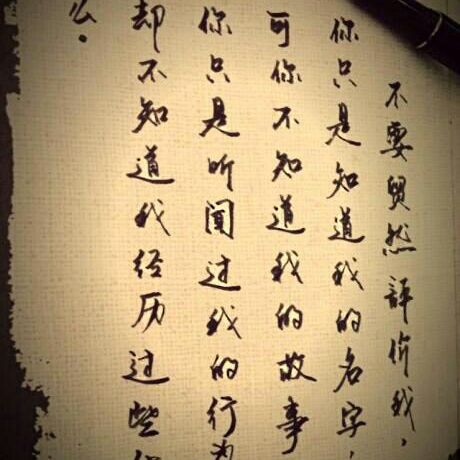 不要贸然評价我，
你只是知道我的名字，
可你不知道我的故事
你只是听闻过我的行为
却不知道我经历过些
么。